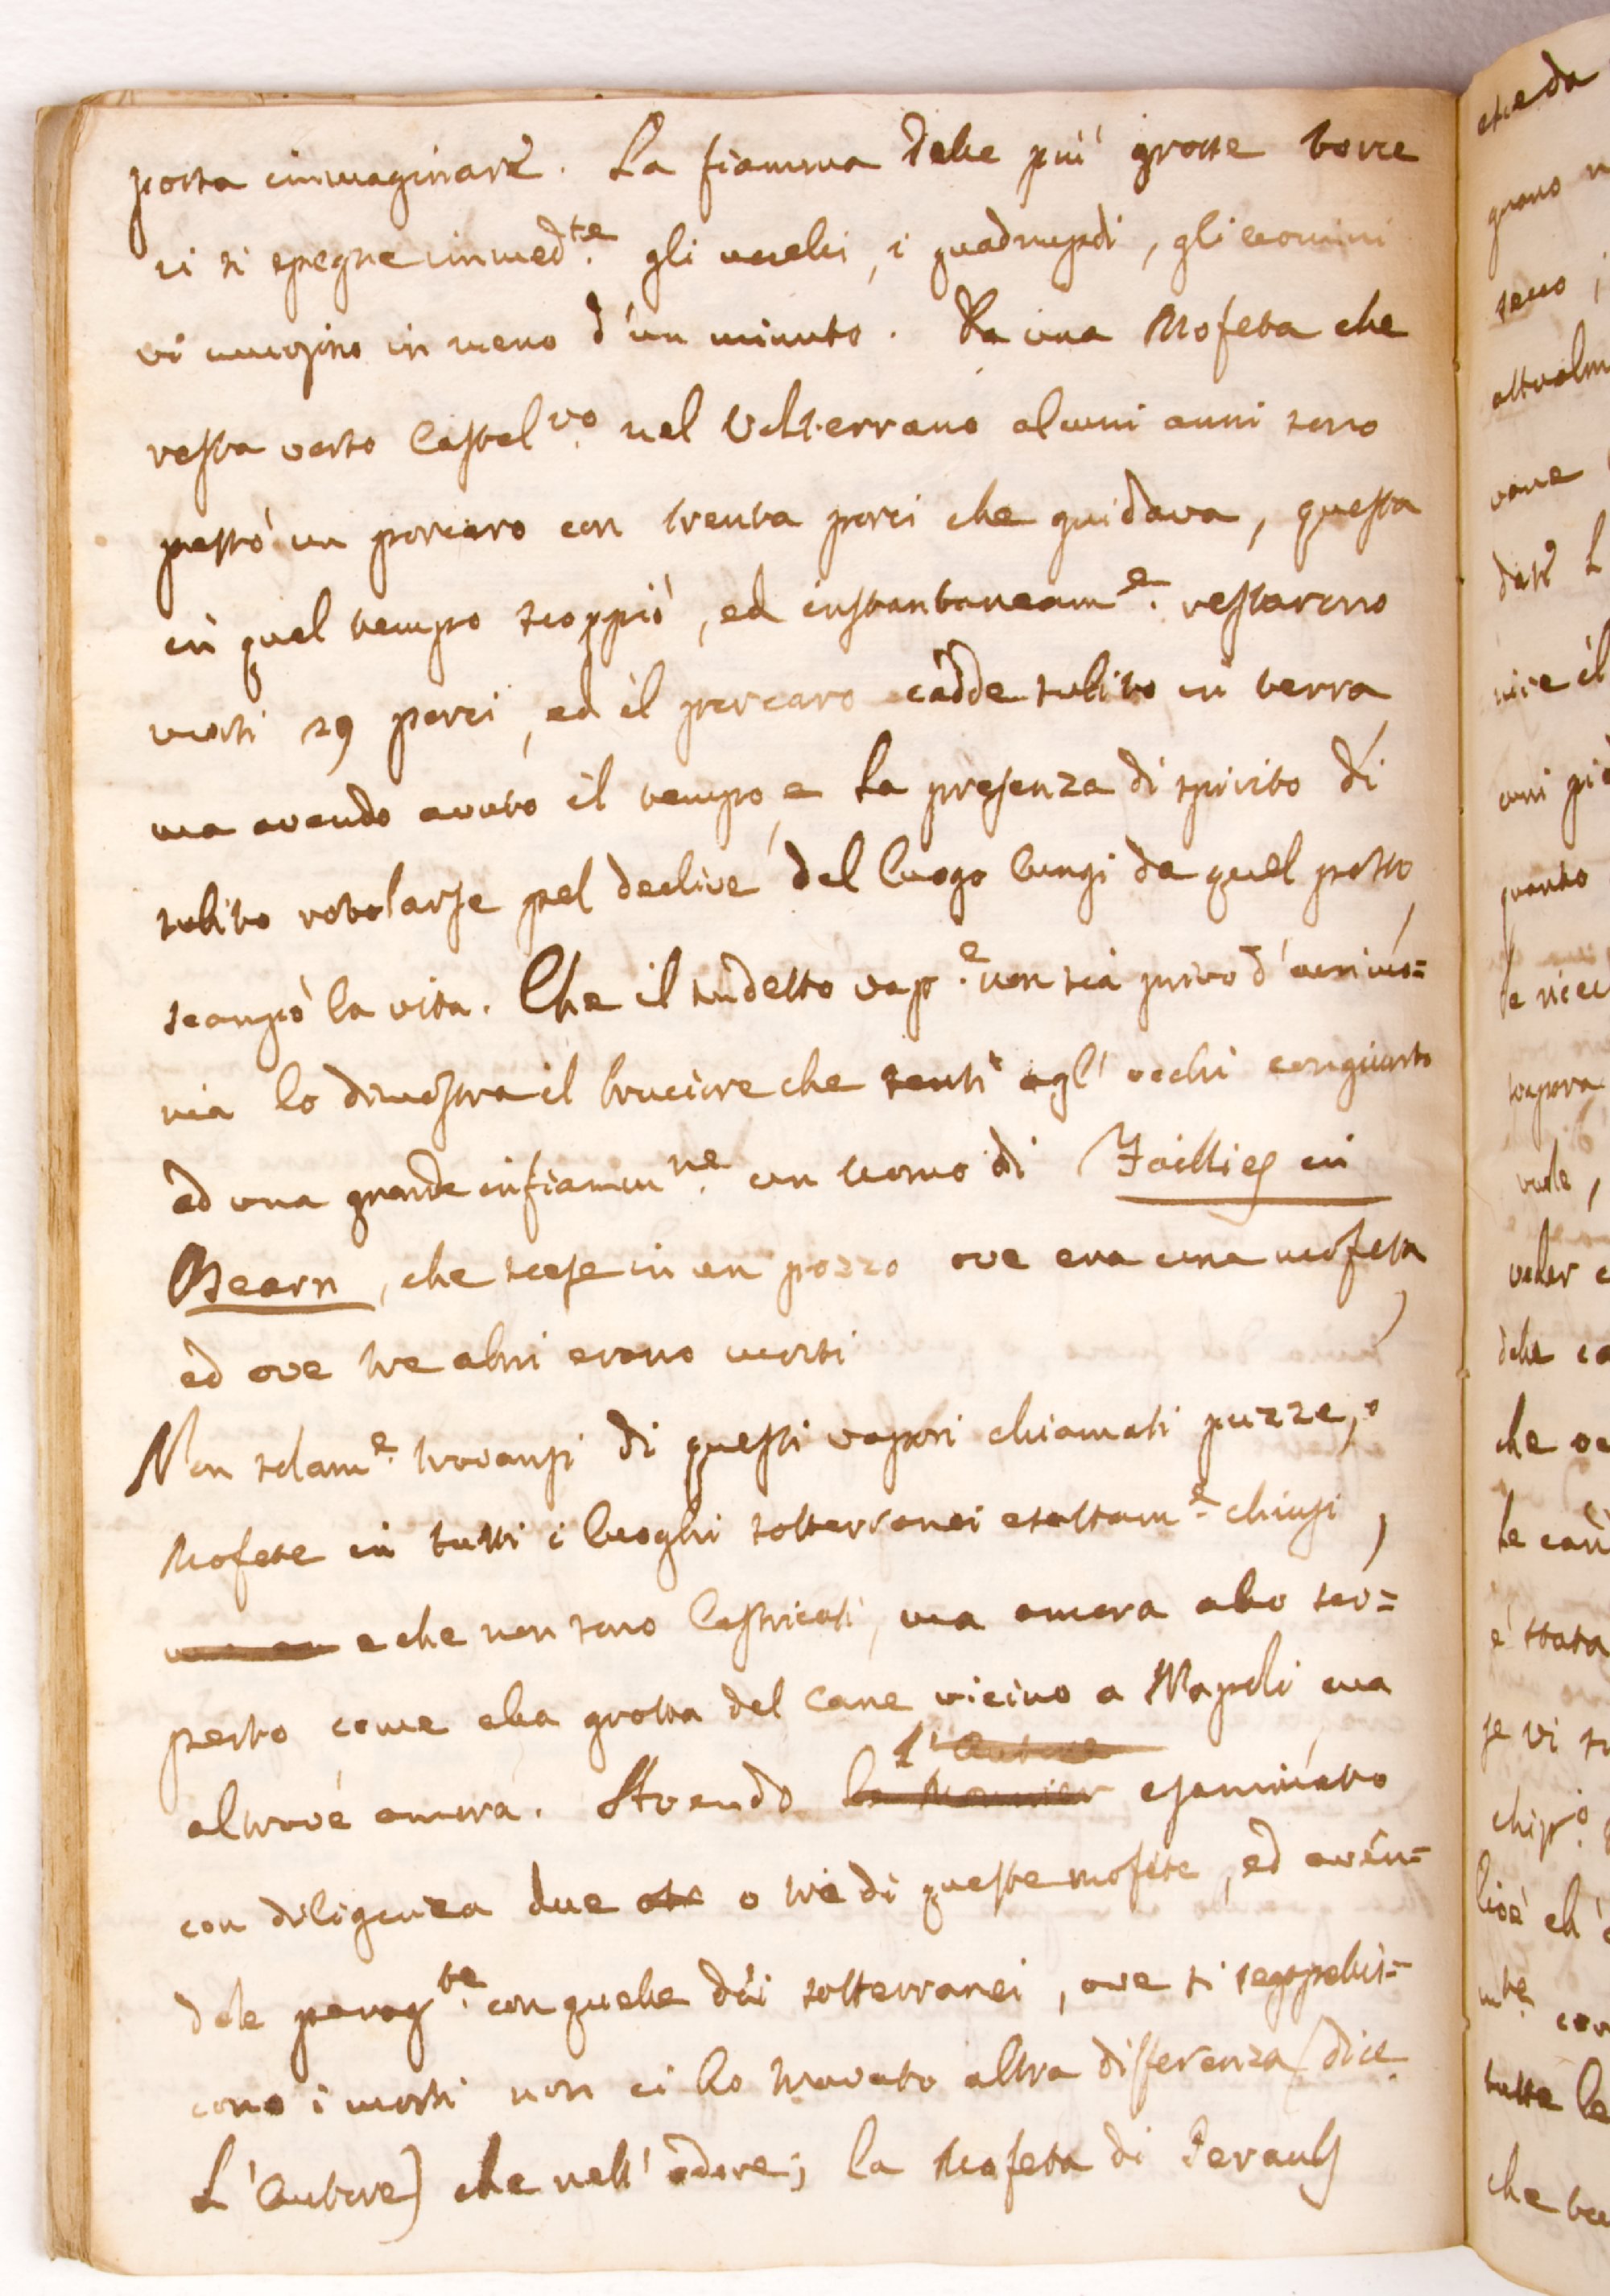 possa immaginare. La fiamma delle più grosse torce
vi si spegne immed.te gli uccelli, i quadrupedi, gli uomini
vi muojono in meno d'un minuto. Da una Mofeta che
resta verso Castel n.vo nel Volterrano alcuni anni sono
passò un porcaro con trenta porci che guidava, questa
in quel tempo scoppiò, ed instantaneam.e restarono
morti 29 porci, ed il porcaro cadde subito in terra
ma avendo avuto il tempo, e la presenza di spirito di
subito rotolarse pel declive del luogo lungi da quel posto,
scampò la vita. Che il sudetto vap.e non sia privo d'acrimo=
nia lo dimostra il bruciore che sentì agl' occhi congiunto
ad una grande infiamm.ne un uomo di
Bearn, che scese in un pozzo ove era una mofeta,
ed ove tre altri erano morti
Non solam.e trovansi di questi vapori chiamati puzze, o
Mofete in tutti i luoghi sotterranei esattam.e chiusi,
e che non sono lastricati, ma ancora allo sco=
perto come alla grotta del Cane vicino a Napoli, ma
altrove ancora. Avendo l'Autore le Monnier esaminato
con diligenza due o tre di queste mofete, ed aven=
dole parag.te con quelle dei sotterranei, ove si seppelli=
cono i morti non ci ho trovato altra differenza (dice
L'Autore) che nell' odore; la Mofeta di Perauls
exeda
grano
seno,
attualm
vane
dare L
nire il
quanto
vapora
vole,
veder
delle ca
che
è stata
se vi
cor
tutte le
che